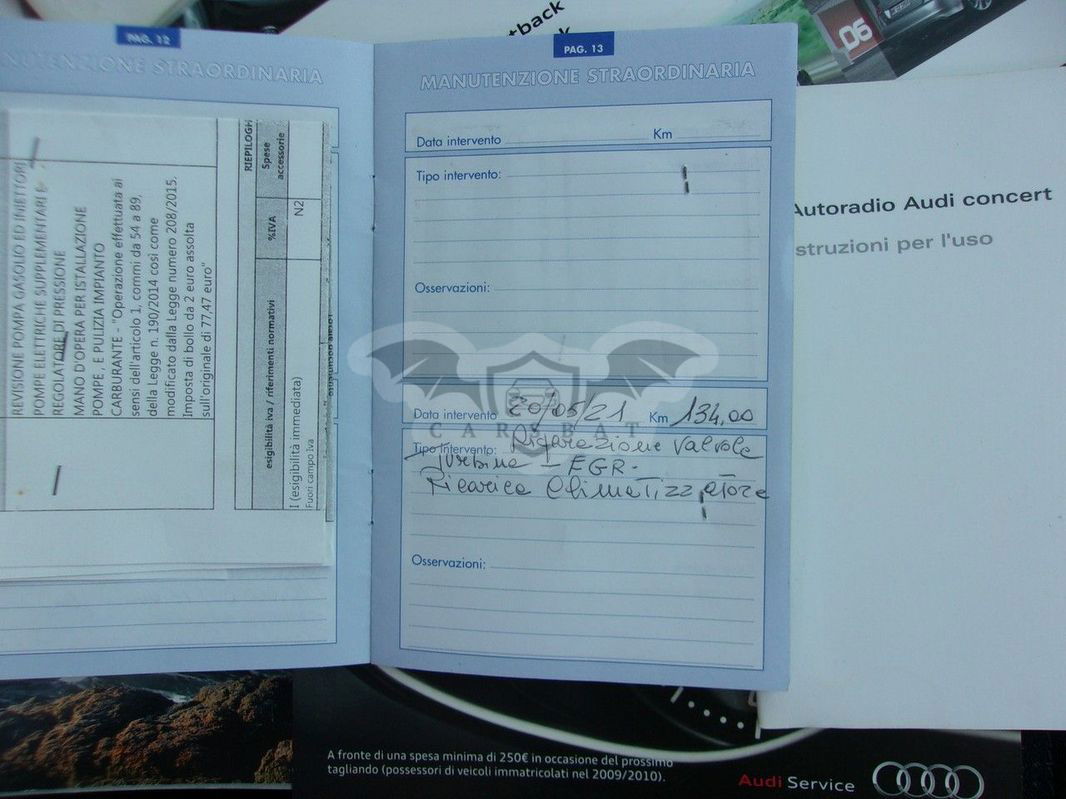 tback
06
PAG. 12
NUTENZIONE STRAORDINARIA
REVISIONE POMPA GASOLIO ED INIETTORI
POMPE ELETTRICHE SUPPLEMENTARI e
REGOLATORE DI PRESSIONE
MANO D'OPERA PER ISTALLAZIONE
POMPE , E PULIZIA IMPIANTO
CARBURANTE - "Operazione effettuata ai
sensi dell'articolo 1, commi da 54 a 89,
della Legge n. 190/2014 così come
modificato dalla Legge numero 208/2015.
Imposta di bollo da 2 euro assolta
sull'originale di 77,47 euro"
RIEPILOGHI
Spese
accessorie
%IVA
N2
esigibilità iva / riferimenti normativi
I (esigibilità immediata)
Fuori campo Iva
PAG. 13
MANUTENZIONE STRAORDINARIA
Data intervento Km
Tipo intervento:
Osservazioni:
Data intervento 20/05/21 Km 134,00
CARSBAT
Tipo intervento: Riparazione Valvole
Turbina - EGR -
Ricarica Climatizzatore
Osservazioni:
Autoradio Audi concert
struzioni per l'uso
A fronte di una spesa minima di 250€ in occasione del prossimo
tagliando (possessori di veicoli immatricolati nel 2009/2010).
Audi Service